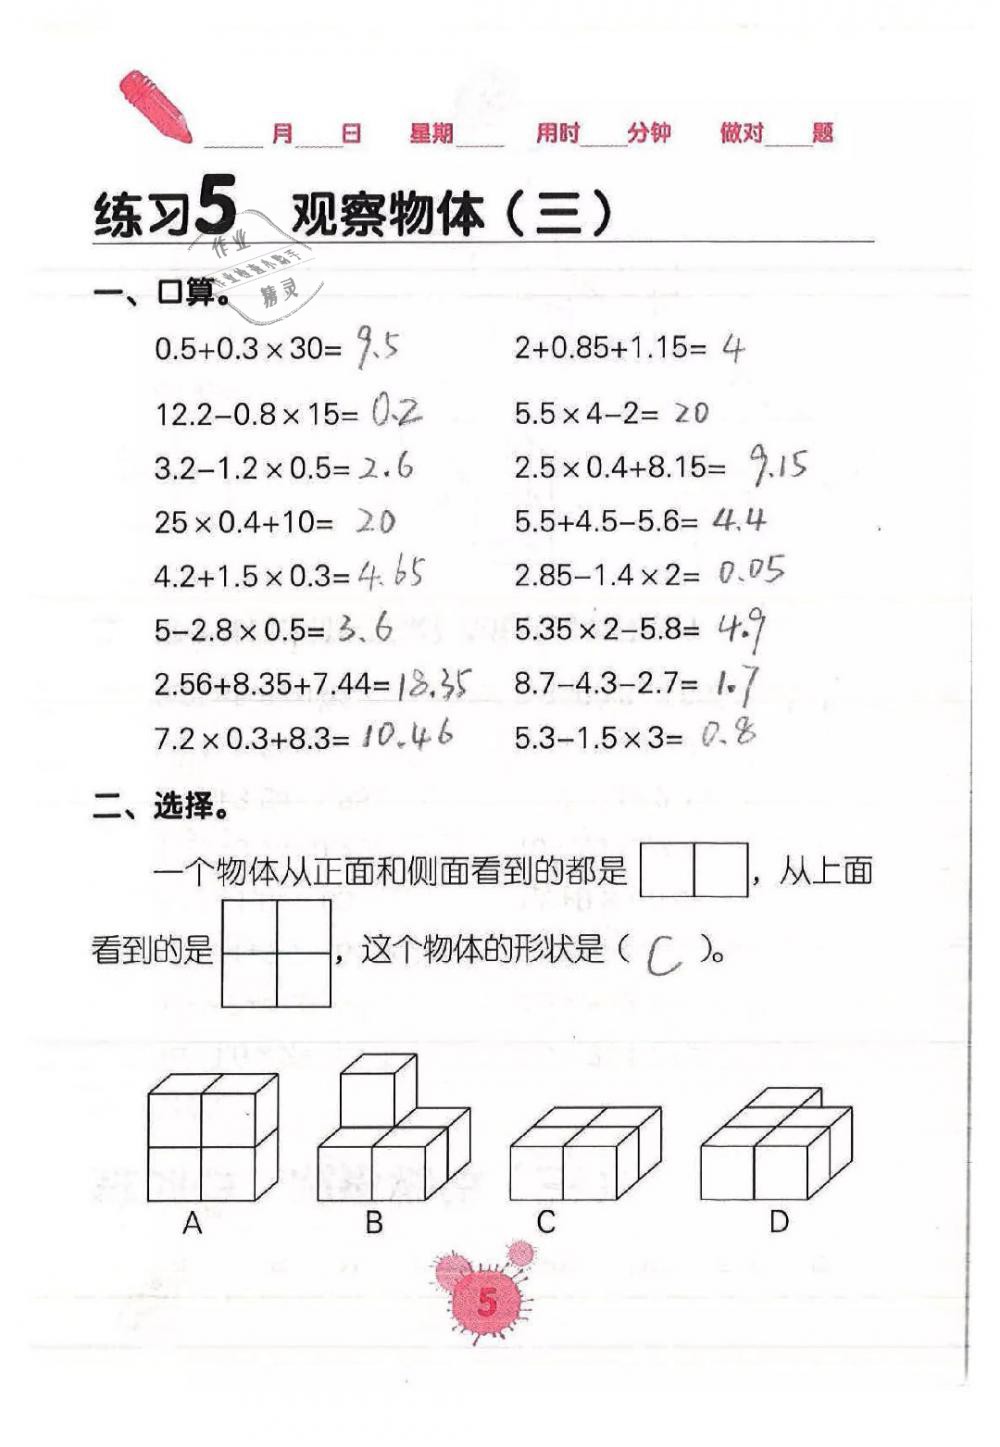 月 日 星期 用时 分钟 做对 题
练习5 观察物体（三）
作业
作业检查小助手
精灵
一、口算。
0.5+0.3×30= 9.5 2+0.85+1.15= 4
12.2−0.8×15= 0.2 5.5×4−2= 20
3.2−1.2×0.5= 2.6 2.5×0.4+8.15= 9.15
25×0.4+10= 20 5.5+4.5−5.6= 4.4
4.2+1.5×0.3= 4.65 2.85−1.4×2= 0.05
5−2.8×0.5= 3.6 5.35×2−5.8= 4.9
2.56+8.35+7.44= 18.35 8.7−4.3−2.7= 1.7
7.2×0.3+8.3= 10.46 5.3−1.5×3= 0.8
二、选择。
一个物体从正面和侧面看到的都是 ，从上面
看到的是 ，这个物体的形状是（ C ）。
A B C D
5